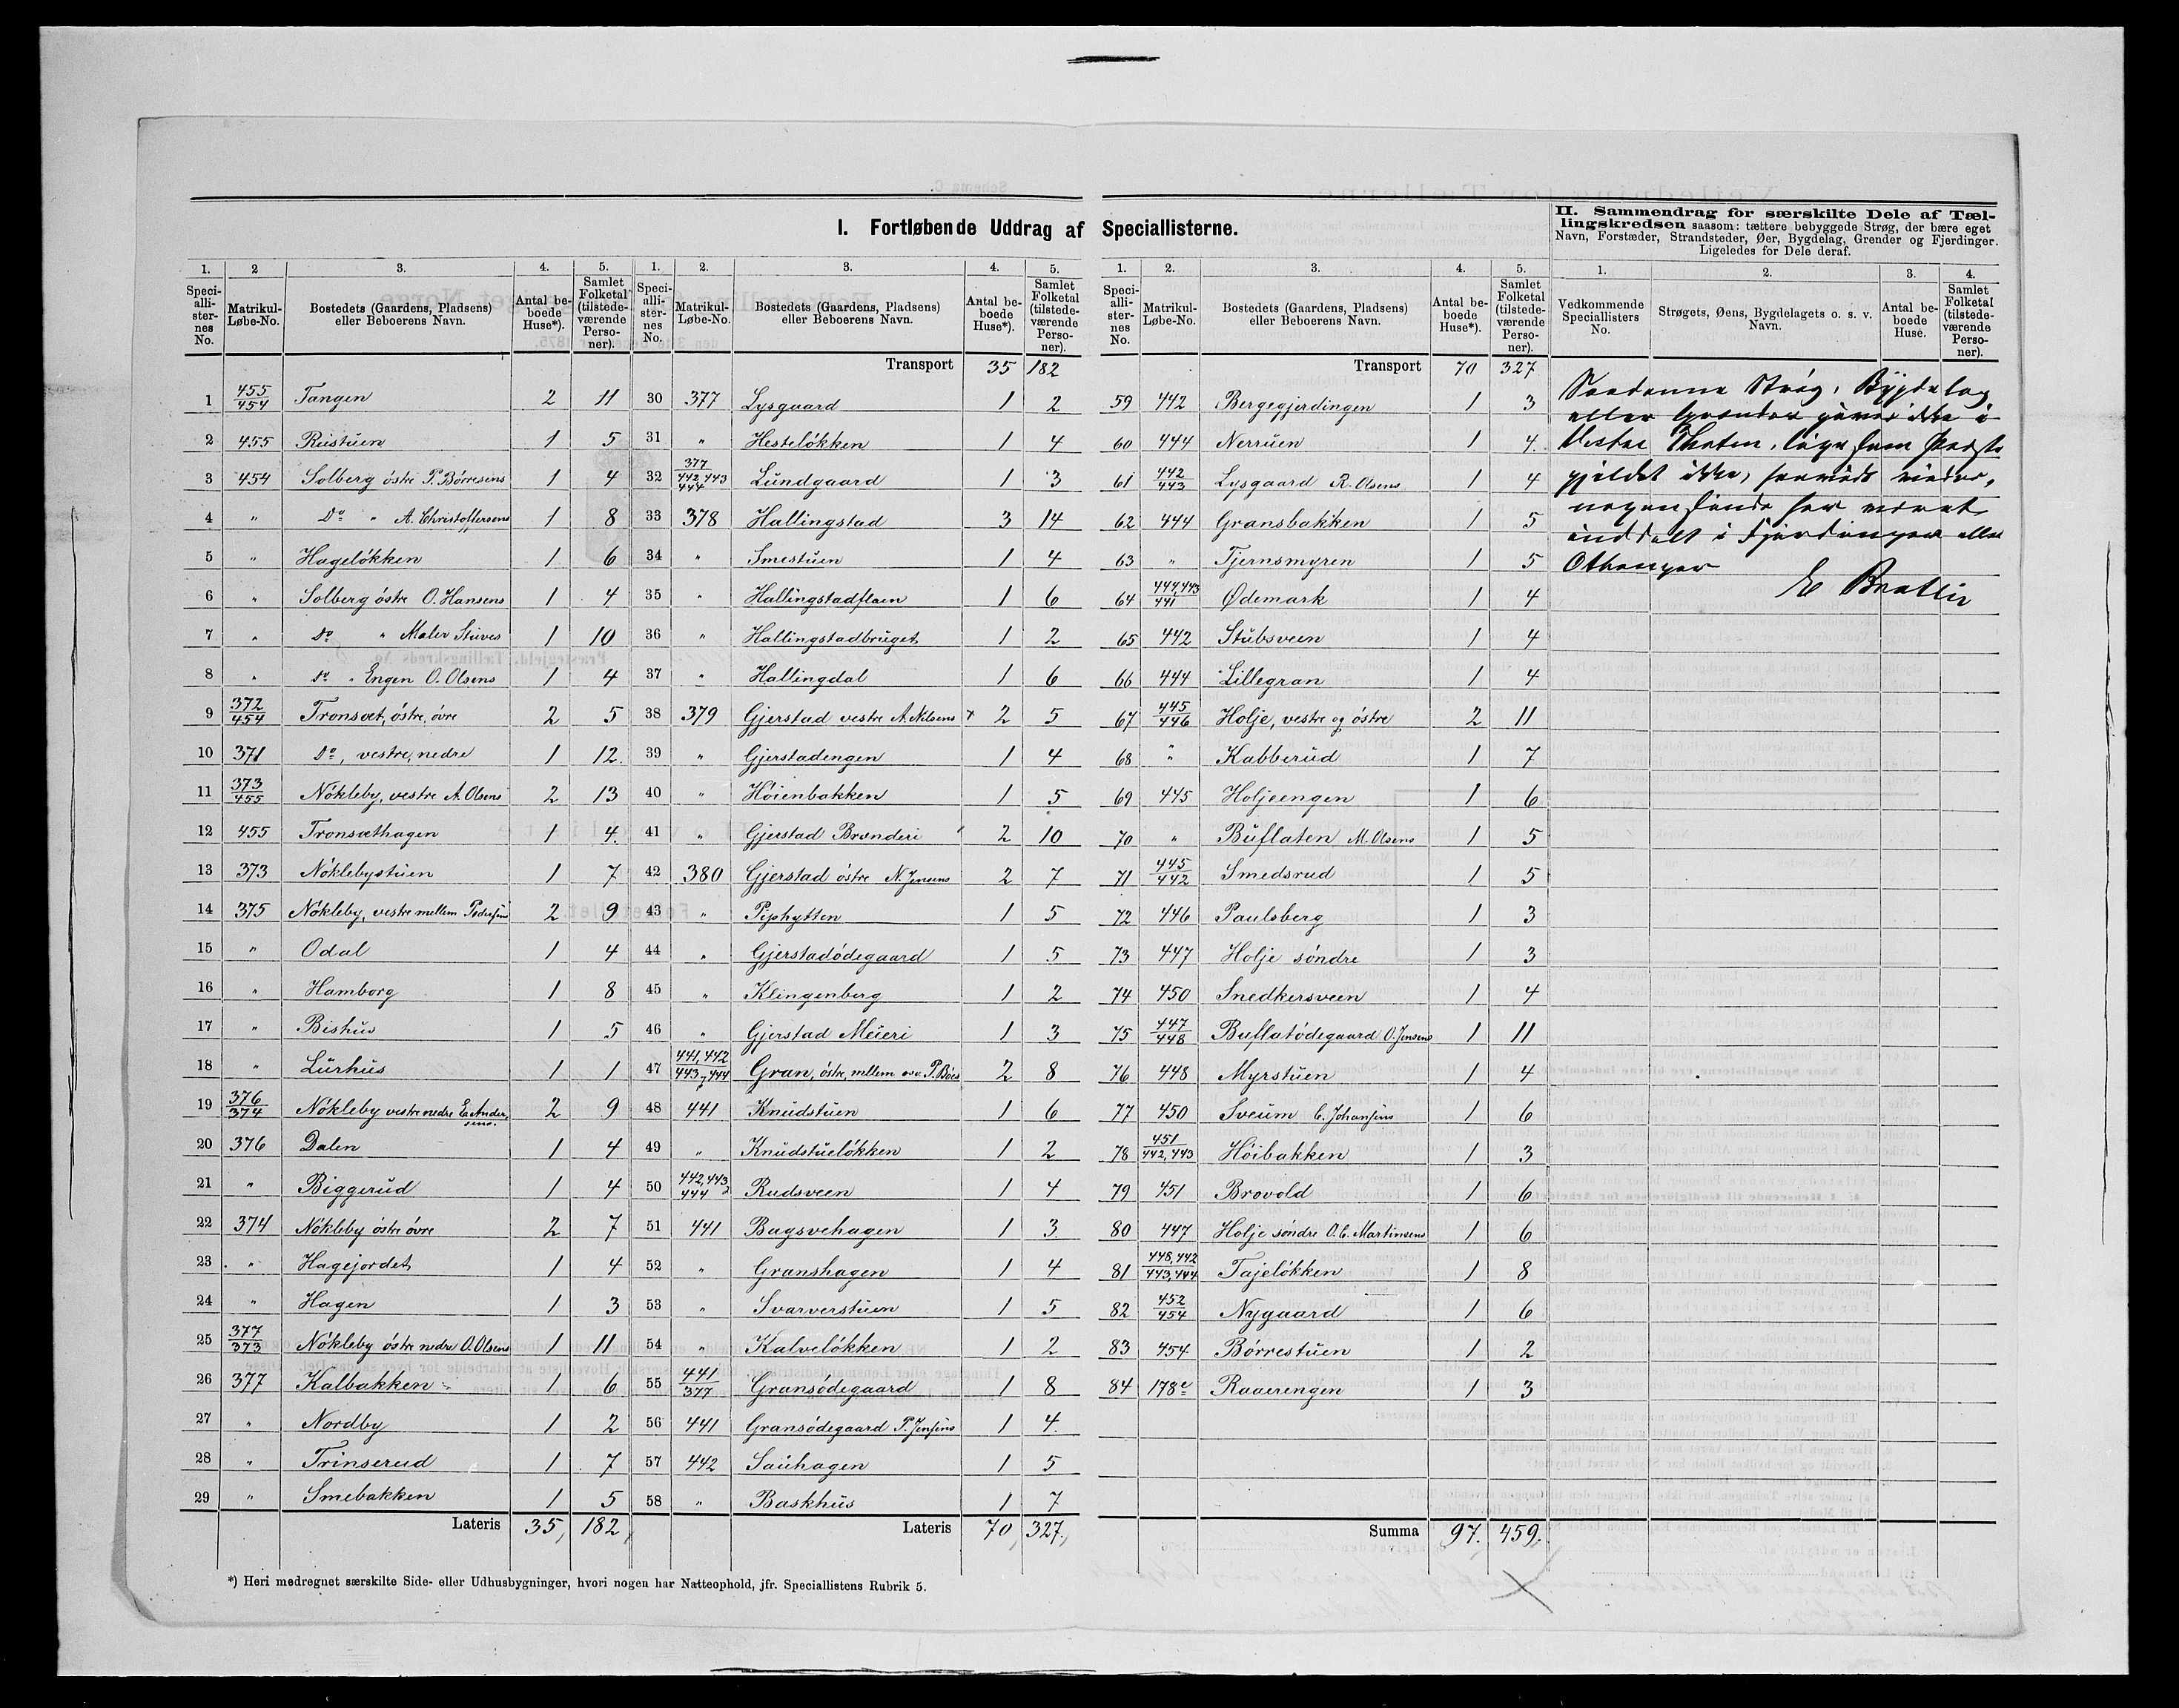 I. Fortløbende Uddrag af Speciallisterne.
1. Speciallisternes No. | 2 Matrikul-Løbe-No. | 3. Bostedets (Gaardens, Pladsens) eller Beboerens Navn. | 4. Antal beboede Huse*). | 5. Samlet Folketal (tilstedeværende Personer).
1 | 455/454 | Tangen | 2 | 11
2 | 455 | Rustuen | 1 | 5
3 | 454 | Solberg östre P. Börresens | 1 | 4
4 | " | Do " A. Christoffersens | 1 | 8
5 | " | Hagelökken | 1 | 6
6 | " | Solberg östre O. Hansens | 1 | 4
7 | " | do " Maler Stuves | 1 | 10
8 | " | do " Engen O. Olsens | 1 | 4
9 | 372/454 | Tronsæt, östre, övre | 2 | 5
10 | 371 | Do, vestre, nedre | 1 | 12.
11 | 373/455 | Nökleby, vestre A. Olsens | 2 | 13
12 | 455 | Tronsæthagen | 1 | 4.
13 | 373 | Nöklebystuen | 1 | 7
14 | 375 | Nökleby, vestre mellem Pedersens | 2 | 9
15 | " | Odal | 1 | 4
16 | " | Hamborg | 1 | 8
17 | " | Bishus | 1 | 5
18 | " | Lurhus | 1 | 1
19 | 376/374 | Nökleby vestre nedre E. Andersens. | 2 | 9
20 | 376 | Dalen | 1 | 4
21 | " | Biggerud | 1 | 4
22 | 374 | Nökleby östre övre | 2 | 7
23 | " | Hagejordet | 1 | 4
24 | " | Hagen | 1 | 3
25 | 377/373 | Nökleby östre nedre O. Olsens | 1 | 11
26 | 377 | Kalbakken | 1 | 6
27 | " | Nordby | 1 | 2
28 | " | Trinserud | 1 | 7
29 | " | Smebakken | 1 | 5
Lateris | 35, | 182,
*) Heri medregnet særskilte Side- eller Udhusbygninger, hvori nogen har Natteophold, jfr. Speciallistens Rubrik 5.
1. Speciallisternes No. | 2. Matrikul-Løbe-No. | 3. Bostedets (Gaardens, Pladsens) eller Beboerens Navn. | 4. Antal beboede Huse*). | 5. Samlet Folketal (tilstedeværende Personer).
Transport | 35 | 182
30 | 377 | Lysgaard | 1 | 2
31 | " | Hestelökken | 1 | 4
32 | 377/442,443/444 | Lundgaard | 1 | 3
33 | 378 | Hallingstad | 3 | 14
34 | " | Smestuen | 1 | 4
35 | " | Hallingstadflaen | 1 | 6
36 | " | Hallingstadbruget | 1 | 2
37 | " | Hallingdal | 1 | 6
38 | 379 | Gjerstad vestre A. Nilsens | 2 | 5
39 | " | Gjerstadengen | 1 | 4
40 | " | Höienbakken | 1 | 5
41 | " | Gjerstad Brænderi | 2 | 10
42 | 380 | Gjerstad östre N. Jensens | 2 | 7
43 | " | Piphytten | 1 | 5
44 | " | Gjerstadödegaard | 1 | 5
45 | " | Klingenberg | 1 | 2
46 | " | Gjerstad Meieri | 1 | 3
47 | 441,442/443,444 | Gran, östre, mellem osv. P. Böes | 2 | 8
48 | 441 | Knudstuen | 1 | 6
49 | " | Knudstuelökken | 1 | 2
50 | 442,443/444 | Rudsveen | 1 | 4
51 | 441 | Bagsvehagen | 1 | 3
52 | " | Granshagen | 1 | 4
53 | " | Svarverstuen | 1 | 5
54 | " | Kalvelökken | 1 | 2
55 | 441/377 | Gransödegaard | 1 | 8
56 | 441 | Gransödegaard P. Jensens | 1 | 4.
57 | 442 | Sauhagen | 1 | 5
58 | " | Baskhus | 1 | 7
Lateris | 70, | 327.,
1. Speciallisternes No. | 2. Matrikul-Løbe-No. | 3. Bostedets (Gaardens, Pladsens) eller Beboerens Navn. | 4. Antal beboede Huse*). | 5. Samlet Folketal (tilstedeværende Personer).
Transport | 70 | 327
59 | 442 | Bergegjerdingen | 1 | 3
60 | 444 | Nerruen | 1 | 4.
61 | 442/443 | Lysgaard R. Olsens | 1 | 4
62 | 444 | Gransbakken | 1 | 5
63 | " | Tjernsmyren | 1 | 5
64 | 444,443/441 | Ødemark | 1 | 4
65 | 442 | Stubsveen | 1 | 4
66 | 444 | Lillegran | 1 | 4
67 | 445/446 | Holje, vestre og östre | 2 | 11
68 | " | Kabberud | 1 | 7
69 | 445 | Holjeengen | 1 | 6
70 | " | Buflaten M. Olsens | 1 | 5
71 | 445/442 | Smedsrud | 1 | 5
72 | 446 | Paulsberg | 1 | 3
73 | 447 | Holje söndre | 1 | 3
74 | 450 | Snedkersveen | 1 | 4
75 | 447/448 | Buflatödegaard O. Jensens | 1 | 11
76 | 448 | Myrstuen | 1 | 4
77 | 450 | Sveum C. Johansens | 1 | 6
78 | 451/442,443 | Höibakken | 1 | 3
79 | 451 | Brovold | 1 | 6
80 | 447 | Holje söndre O. C. Martinsens | 1 | 6
81 | 448,442/443,444 | Tajelökken | 1 | 8
82 | 452/454 | Nygaard | 1 | 6
83 | 454 | Börrestuen | 1 | 2
84 | 178e | Raaerengen | 1 | 3
Summa | 97. | 459.
II. Sammendrag for særskilte Dele af Tællingskredsen saasom: tættere bebyggede Strøg, der bære eget
Navn, Forstæder, Strandsteder, Øer, Bygdelag, Grender og Fjerdinger.
Ligeledes for Dele deraf.
1. Vedkommende Speciallisters No. | 2. Strøgets, Øens, Bygdelagets o. s. v. Navn. | 3. Antal beboede Huse. | 4. Samlet Folketal (tilstedeværende Personer).
Saadanne Strøg, Bygdelag
eller Grender gives ikke i
Vestre Thoten, ligesom Præste
gjeldet ikke,
nogensinde har været
inddelt i Fjerdinger eller
Ottonger